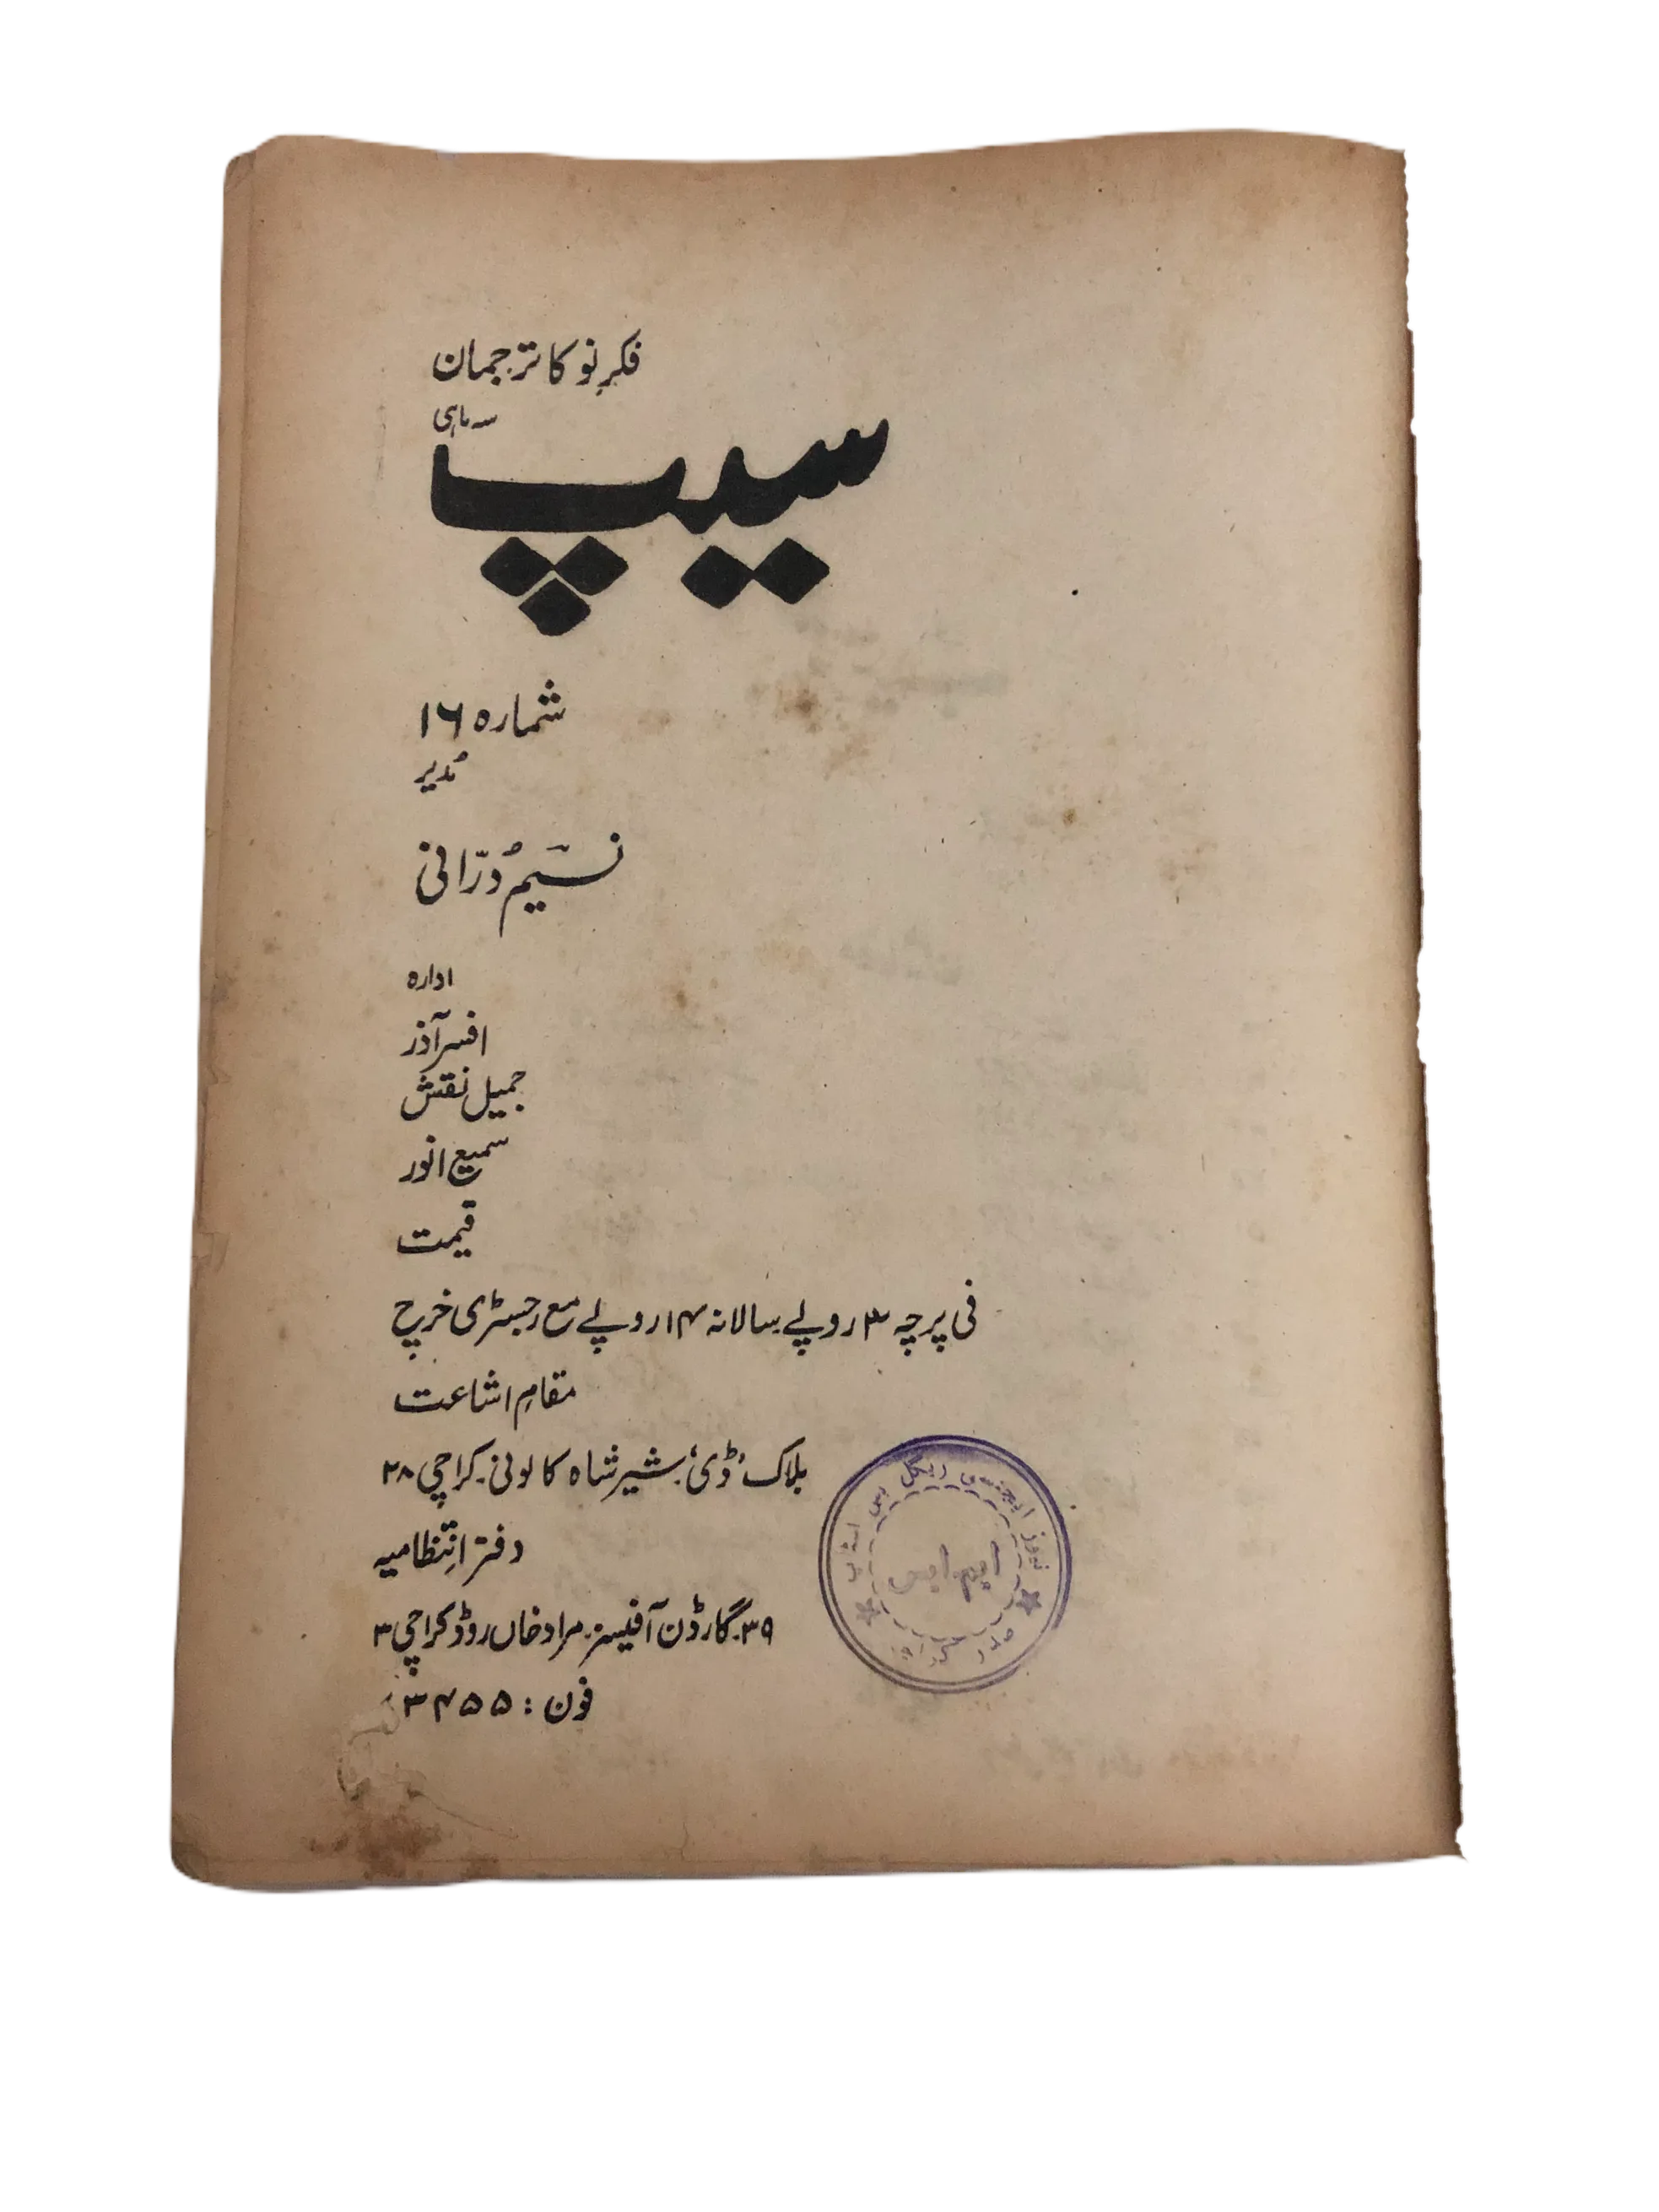 فکرِ نو کا ترجمان
سہ ماہی
سیپ
شمارہ ۱۶
مُدیر
نسیم دُرّانی
ادارہ
افسر آذر
جمیل نقش
سمیع انور
قیمت
فی پرچہ ۳ روپے سالانہ ۱۴ روپے مع رجسٹری خرچ
مقامِ اشاعت
بلاک 'ڈی'. شیر شاہ کالونی. کراچی ۲۸
دفتر انتظامیہ
۳۹. گارڈن آفیسز. مراد خاں روڈ کراچی ۳
فون : ۳۴۵۵
نیوز ایجنسی ریگل بس اسٹاپ
ایم. ایس
صدر کراچی